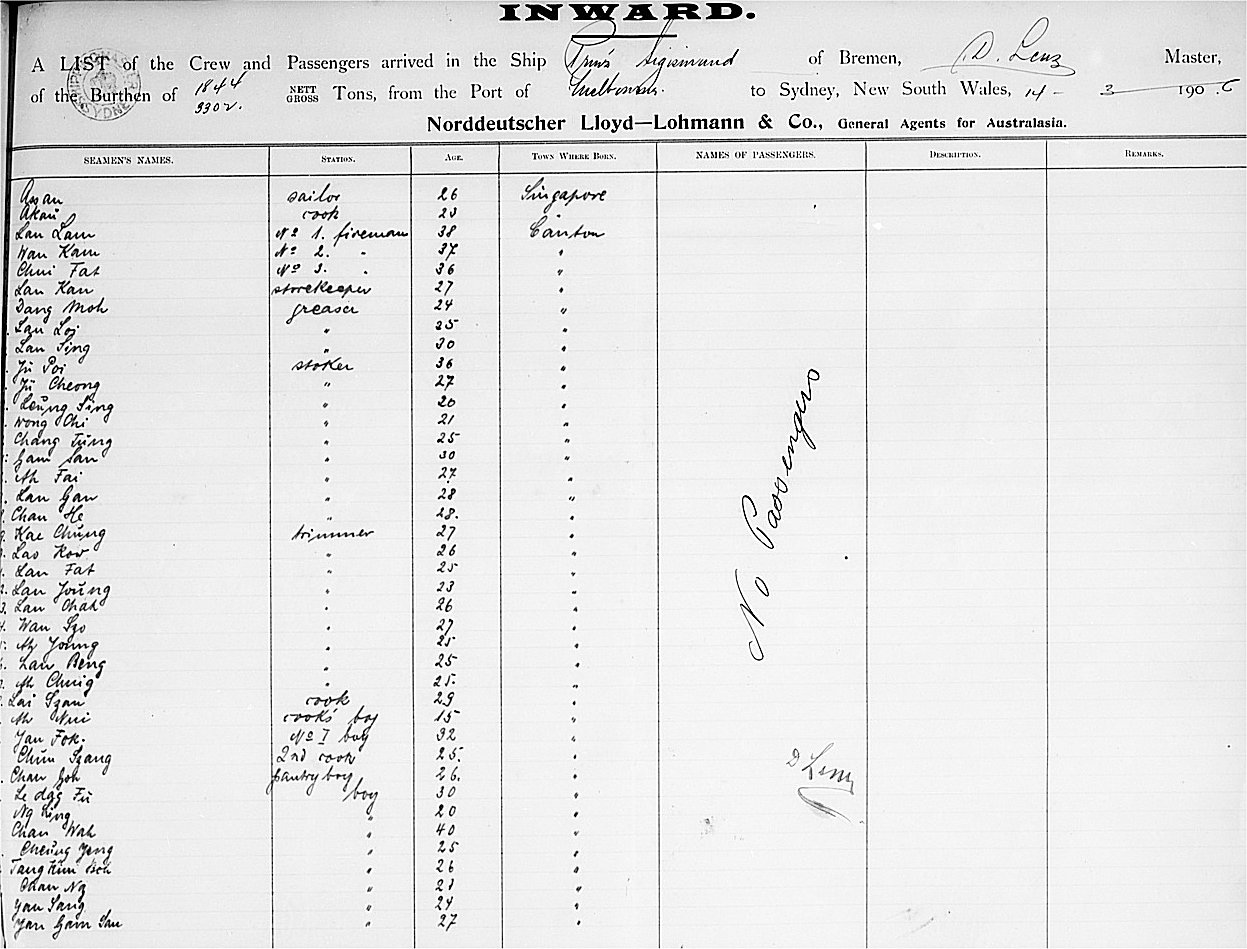 INWARD.
A LIST of the Crew and Passengers arrived in the Ship Prinz Sigismund of Bremen, D. Lenz Master,
of the Burthen of 1844 3302. NETT GROSS Tons, from the Port of Melbourne. to Sydney, New South Wales, 14 - 3 1906
Norddeutscher Lloyd—Lohmann & Co., General Agents for Australasia.
SEAMEN'S NAMES. STATION. AGE. TOWN WHERE BORN. NAMES OF PASSENGERS. DESCRIPTION. REMARKS.
Assan sailor 26 Singapore
Akau cook 23
Lau Lam No 1. fireman 38 Canton
Wan Kam No 2. " 37 "
Chui Fat No 3. " 36 "
Lau Kau storekeeper 27 "
Dang Moh greaser 24 "
Lau Loi " 25 "
Lau Sing " 30 "
Jü Poi stoker 36 "
Jü Cheong " 27 "
Leung Sing " 20 "
Wong Chi " 21 "
Chang Tung " 25 "
Gam San " 30 "
Ah Fai " 27 "
Lau Gan " 28 "
Chan He " 28. "
Kae Chung trimmer 27 "
Lao Kow " 26 "
Lau Fat " 25 "
Lau Joung " 23 "
Lau Chak " 26 "
Wan Szo " 27 "
Ah Young " 25 "
Lau Beng " 25 "
Ah Chuig " 25. "
Lai Szau cook 29 "
Ah Nui cook's boy 15 "
Jan Fok. No I boy 32 "
Chun Szang 2nd cook 25. "
Chan Goh pantry boy 26. "
Le dag Fü boy 30 "
Ng King " 20 "
Chan Wah " 40 "
Cheung Jeng " 25 "
Tang Kim " 26 "
Chan Ng " 21 "
Yau Sang " 24 "
Jan Gam Sau " 27 "
No Passengers
D Lenz